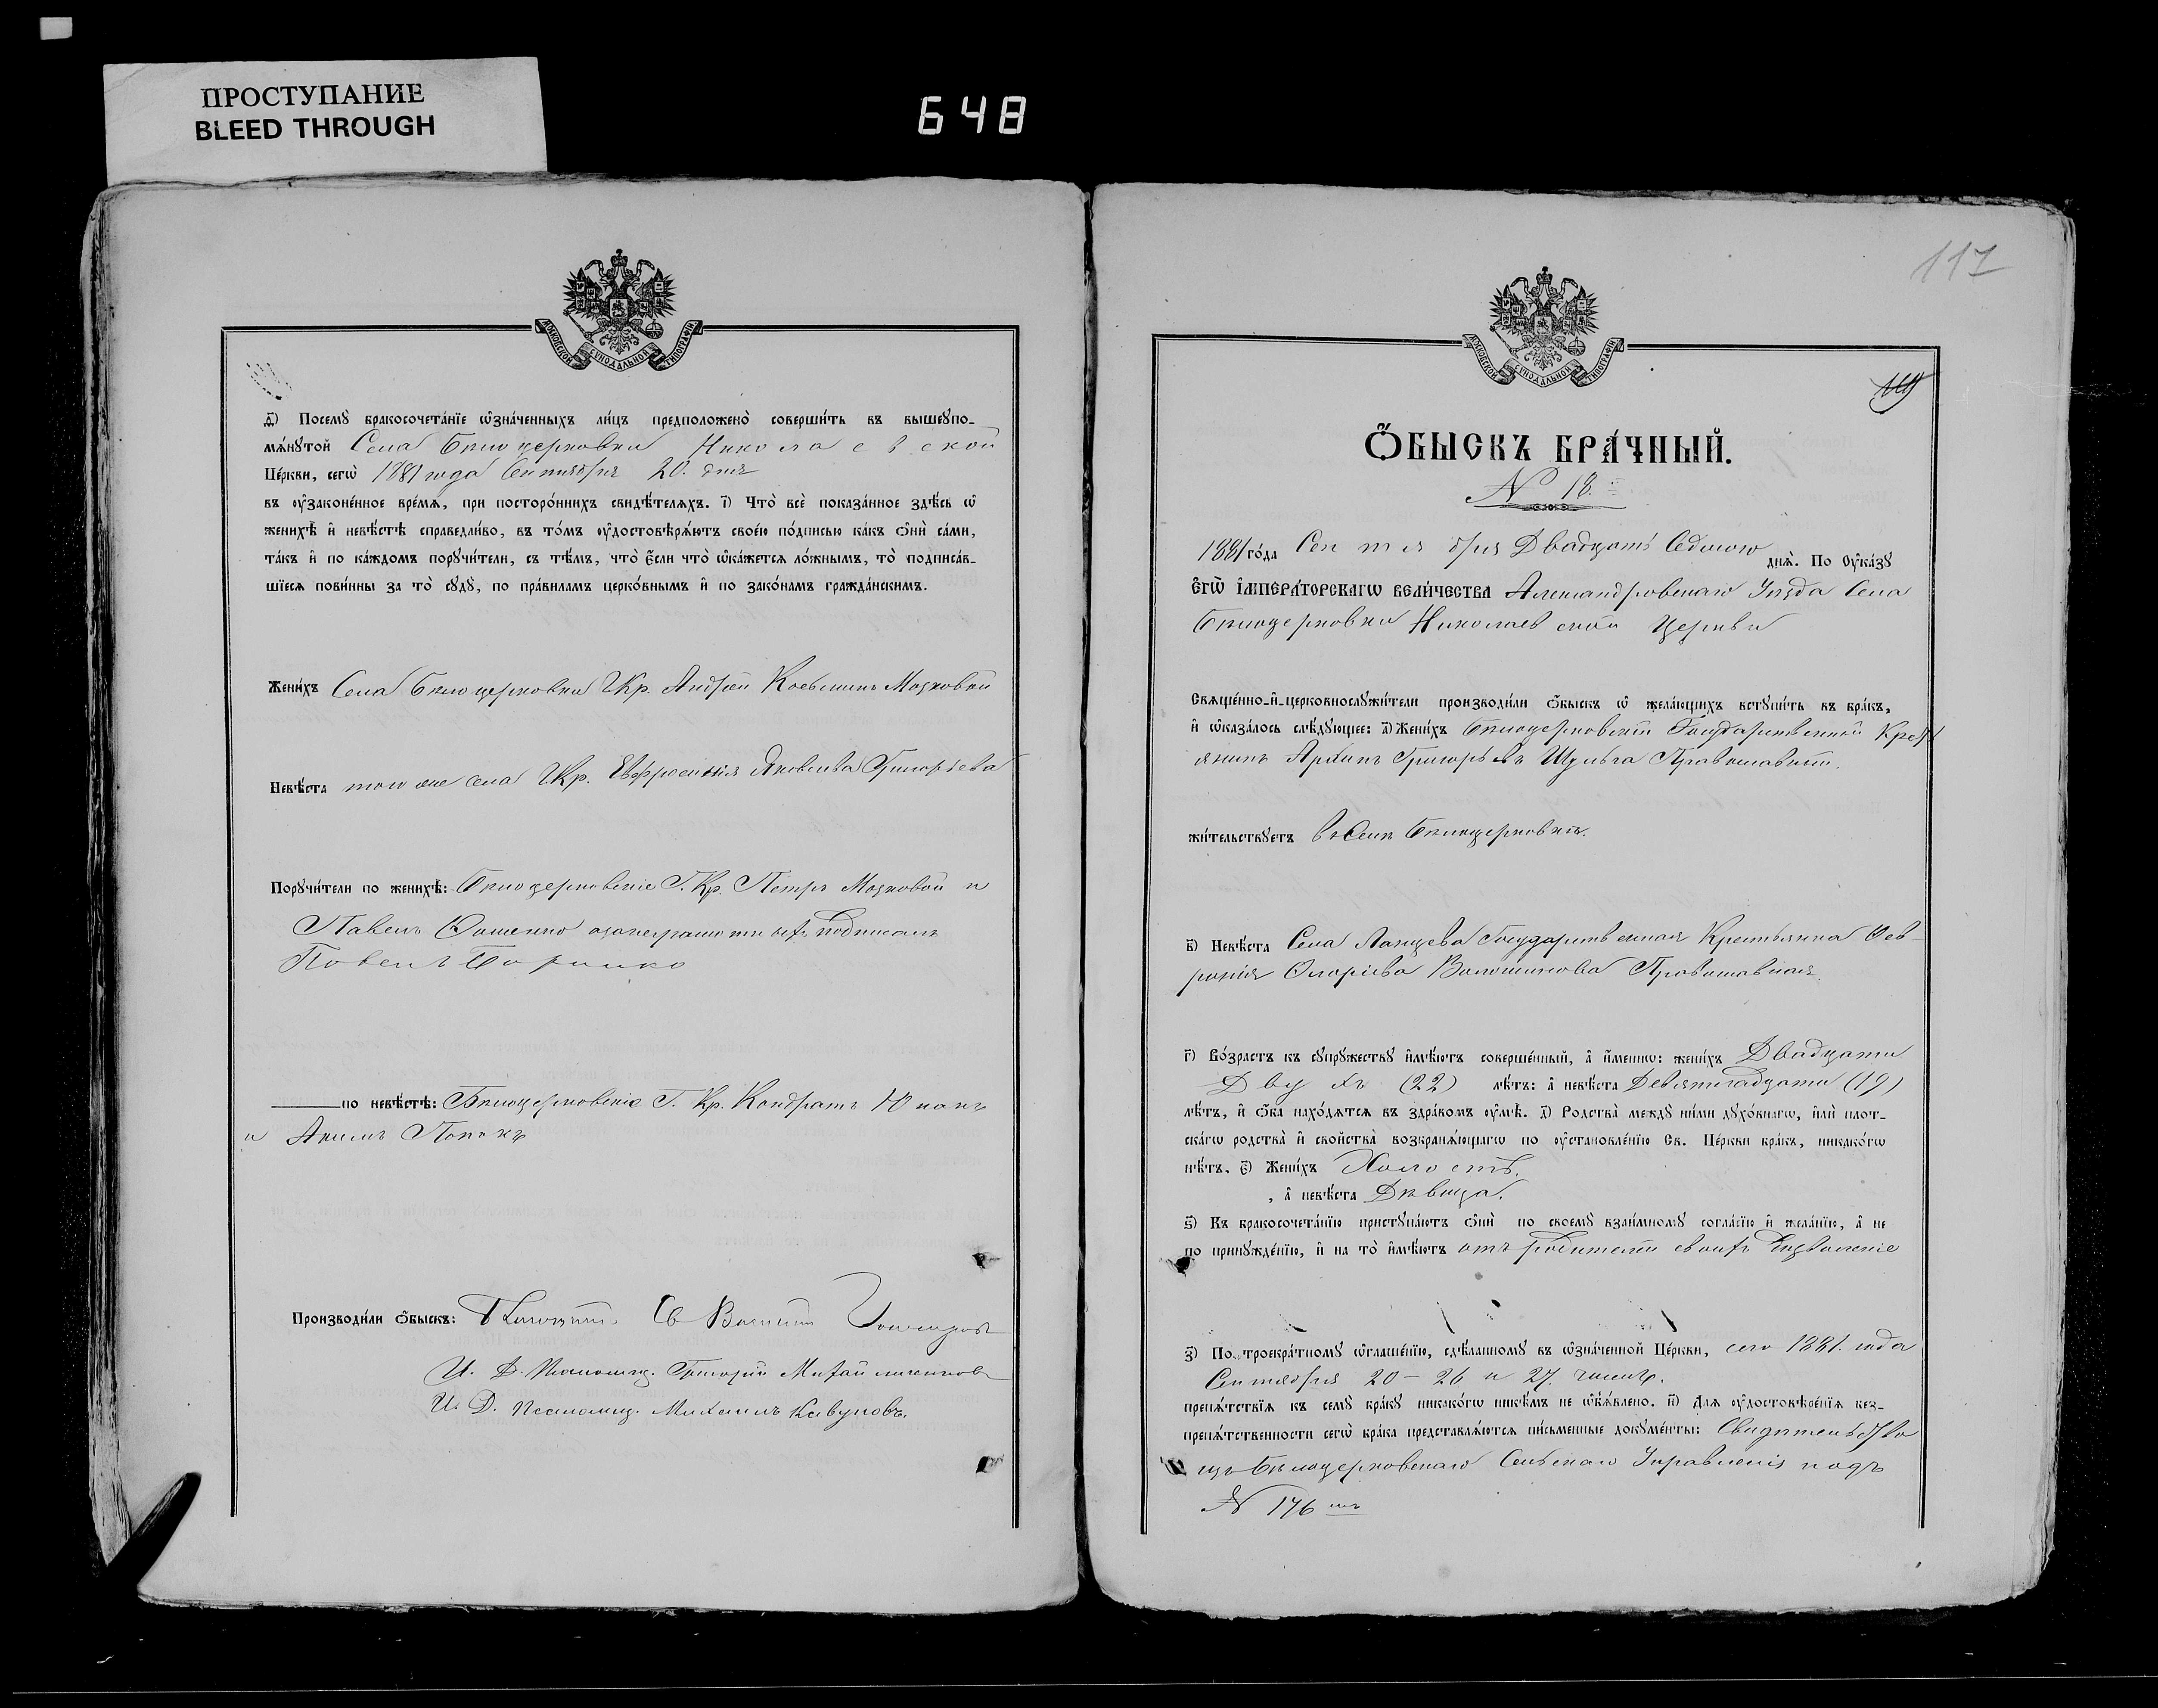 ПРОСТУПАНИЕ
BLEED THROUGH
648
МОСКОВСКОЙ СУНОДАЛЬНОЙ ТИПОГРАФІИ
ѳ҃) Посемꙋ̀ бракосочета́нїе ѡ҆зна́ченныхъ ли́цъ предположено̀ соверши́ть въ вышеꙋпо-
мѧ́нꙋтой Села Бѣлоцерковки Николаевской
Це́ркви, сегѡ̀ 1881 года Сентября 20. дня
въ ᲂу҆законе́нное вре́мѧ, при посторо́ннихъ свидѣ́телѧхъ. і҃) Что̀ всѐ пока́занное здѣ́сь ѡ҆
женихѣ̀ и҆ невѣ́стѣ справедли́во, въ то́мъ ᲂу҆достовѣрѧ́ютъ свое́ю по́дписью ка́къ ѻ҆нѝ са́ми,
та́къ и҆ по ка́ждомъ порꙋчи́тели, съ тѣ́мъ, что̀ є҆́сли что̀ ѡ҆ка́жетсѧ ло́жнымъ, то̀ подписа́в-
шїесѧ пови́нны за то̀ сꙋдꙋ̀, по пра́виламъ церко́внымъ и҆ по зако́намъ гражда́нскимъ.
Жени́хъ Села Бѣлоцерковки Г. Кр. Андрей Мозковой
Невѣ́ста того же села Г. Кр. Евфросинія Яковлева Григорьева
Порꙋчи́тели по женихѣ̀: Бѣлоцерковскіе Г. Кр. Петръ Мозковой и
Павелъ подписалъ
Павелъ
по невѣ́стѣ: Бѣлоцерковскіе Г. Кр. Кондратъ Юнакъ
и Акимъ
Производи́ли ѻ҆́быскъ: Св. Василій
И. Д. Псаломщ. Григорій
И. Д. Псаломщ. Михаилъ Кавуновъ.
117
МОСКОВСКОЙ СУНОДАЛЬНОЙ ТИПОГРАФІИ
Ѻ҆́БЫСКЪ БРА́ЧНЫЙ.
N 18.
1881 го́да Сентября Двадцать Седьмого днѧ̀. По Оу҆ка́зꙋ
Є҆ГѠ̀ И҆МПЕРА́ТОРСКАГѠ ВЕЛИ́ЧЕСТВА Александровскаго Уѣзда Села
Бѣлоцерковки Николаевской Церкви
Свѧще́нно-и҆-церковнослꙋжи́тели производи́ли ѻ҆́быскъ ѡ҆ жела́ющихъ встꙋпи́ть въ бра́къ,
и҆ ѡ҆каза́лось слѣ́дꙋющее: а҃) Жени́хъ Бѣлоцерковскій Государственный Крест
янинъ Архипъ Григорьевъ Шульга Православный.
жи́тельствꙋетъ въ Селѣ Бѣлоцерковкѣ.
в҃) Невѣ́ста Села Государственная Крестьянка Фев-
ронія Волошинова Православная.
г҃) Во́зрастъ къ сꙋпрꙋ́жествꙋ и҆мѣ́ютъ соверше́нный, а҆ и҆́меннѡ: жени́хъ Двадцати
Двухъ (22) лѣ́тъ: а҆ невѣ́ста Девятнадцати (19)
лѣ́тъ, и҆ ѻ҆́ба нахо́дѧтсѧ въ здра́вомъ ᲂу҆мѣ̀. д҃) Родства̀ междꙋ̀ ни́ми дꙋхо́внагѡ, и҆лѝ пло́т-
скагѡ родства̀ и҆ свойства̀ возбранѧ́ющагѡ по ᲂу҆становле́нїю Св. Це́ркви бра́къ, никако́гѡ
нѣ́тъ. є҃) Жени́хъ Холостъ.
, а҆ невѣ́ста Дѣвица.
ѕ҃) Къ бракосочета́нїю пристꙋпа́ютъ ѻ҆нѝ по своемꙋ̀ взаи́мномꙋ согла́сїю и҆ жела́нїю, а҆ не
по принꙋжде́нїю, и҆ на то̀ и҆мѣ́ютъ отъ родителей своихъ
з҃) По троекра́тномꙋ ѡ҆глаше́нїю, сдѣ́ланномꙋ въ ѡ҆зна́ченной Це́ркви, сего 1881. года
Сентября 20 – 26 и 27. чиселъ.
препѧ́тствїѧ къ семꙋ̀ бра́кꙋ никако́гѡ никѣ́мъ не ѡ҆б̾ѧ́влено. и҃) Длѧ ᲂу҆достовѣре́нїѧ без-
препѧ́тственности сегѡ̀ бра́ка представлѧ́ютсѧ пи́сьменные докꙋме́нты: Свидѣтельство
изъ Бѣлоцерковскаго Сельскаго Управленія подъ
N 176